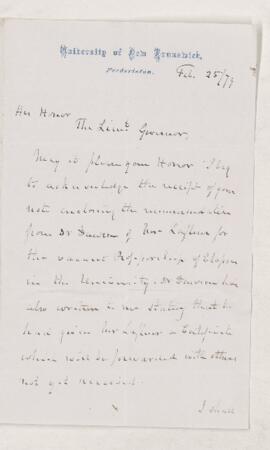 University of New Brunswick,
Fredericton,
Feb. 25/79
His Honor
The Lieut Governor,
May it please your Honor I beg
to acknowledge the receipt of your
note enclosing the recommendation
from Dr Dawson of Mr
the vacant Professorship of
in the University. Dr Dawson has
also written to me stating that he
had given Mr a Certificate
which will be forwarded with others
not yet received.
I shall